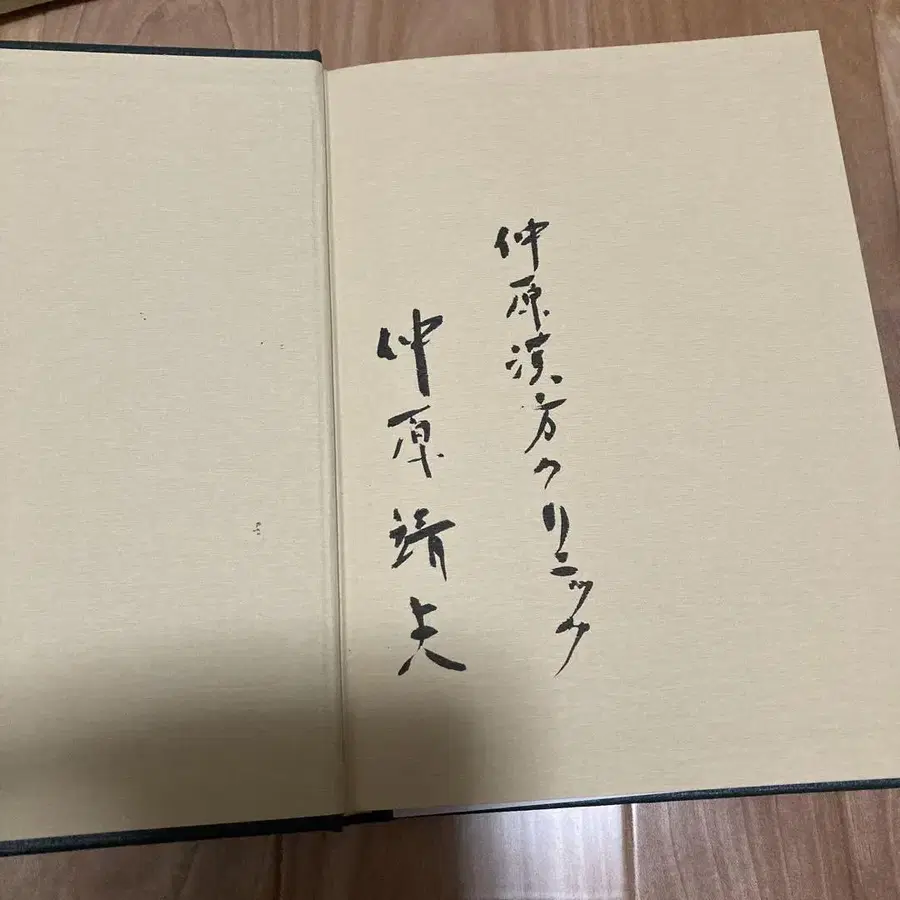 仲原漢方クリニック
仲原靖夫